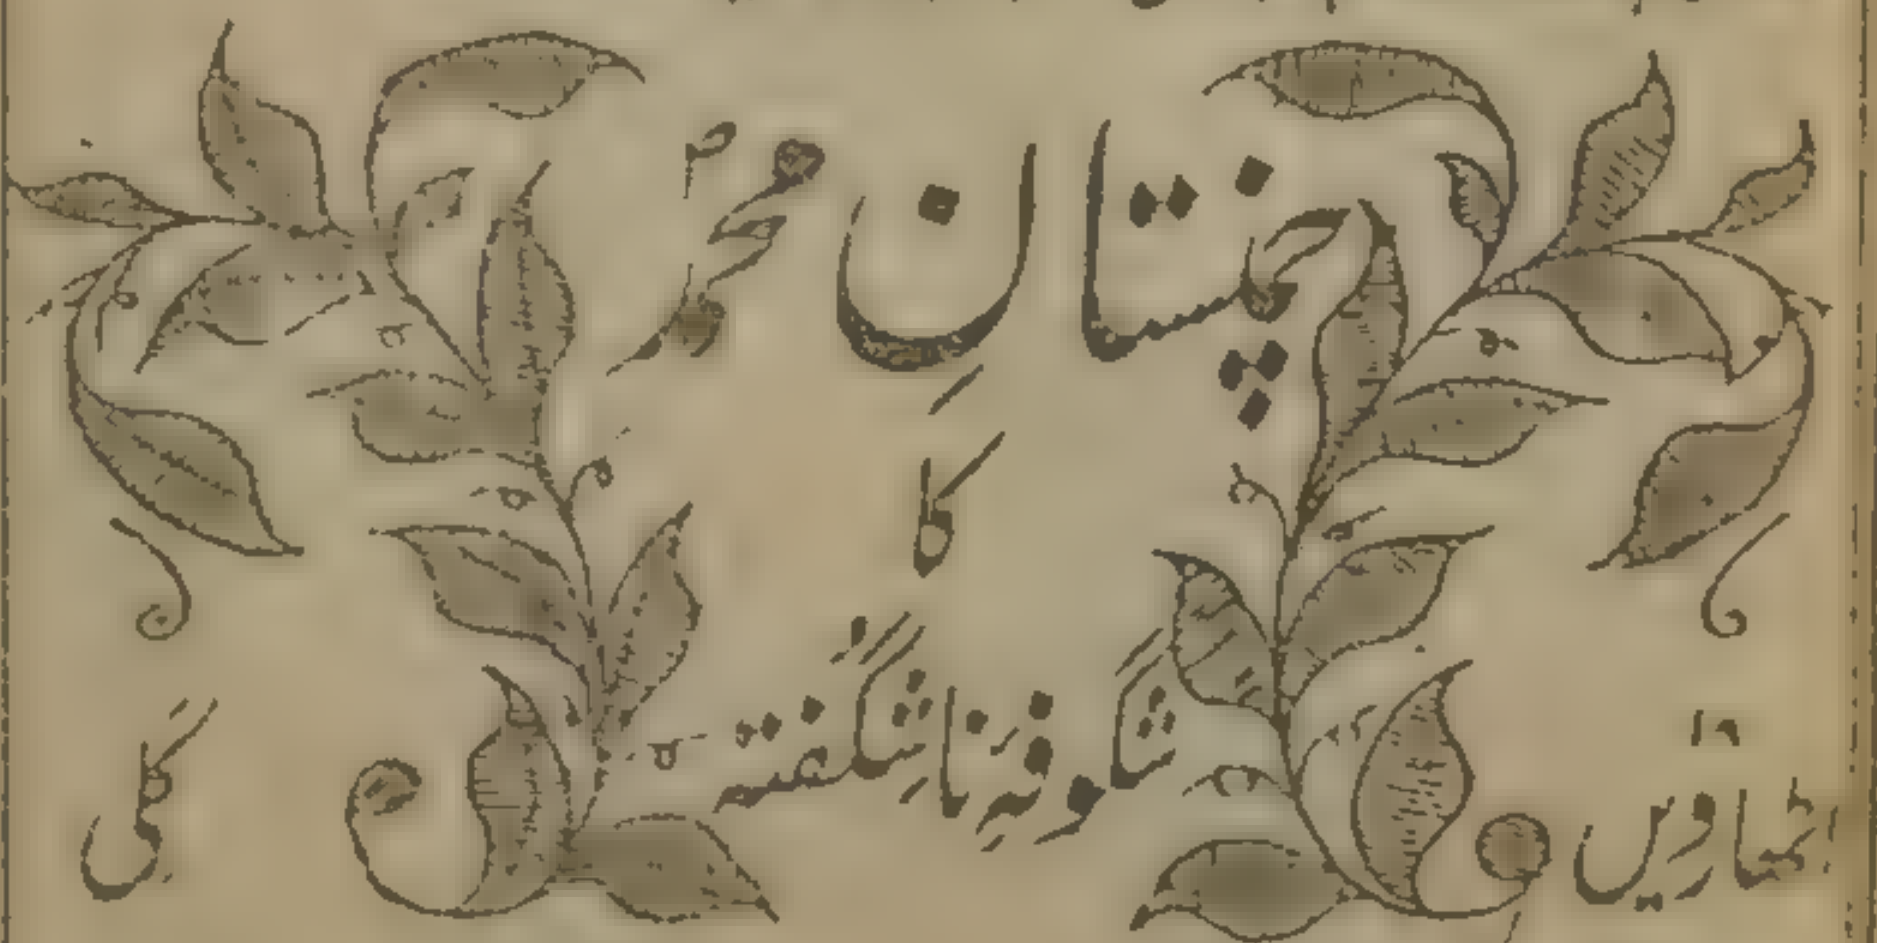 چمنستانِ
کا
شگوفۂ ناشگفتہ
۱۸
اٹھارویں کلی